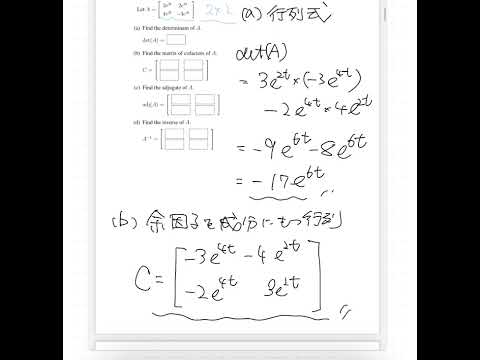 Let A =
2×2
(a) Find the determinant of A.
det(A) =
(b) Find the matrix of cofactors of A.
C =
(c) Find the adjugate of A.
adj(A) =
(d) Find the inverse of A.
A⁻¹ =
(a) 行列式
det(A)
= 3e^{2t} × (-3e^{4t})
- 2e^{4t} × 4e^{2t}
= -9e^{6t} - 8e^{6t}
= -17e^{6t}
(b) 余因子を成分にもつ行列
C = [ -3e^{4t} -4e^{2t}
-2e^{4t} 3e^{2t} ]